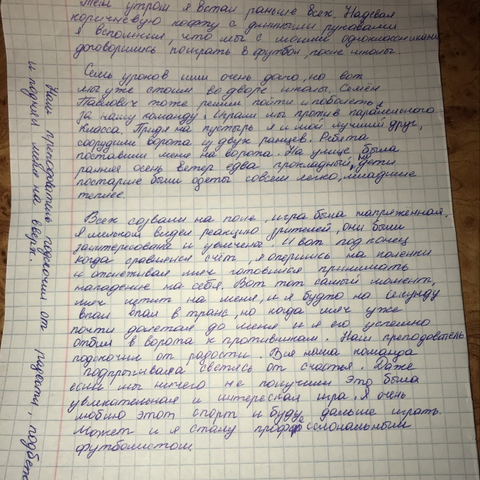 Тем утром я встал раньше всех. Надевая
коричневую кофту с длинными рукавами
я вспомнил, что мы с моими одноклассниками
договоришись поиграть в футбол, после школы.
Семь уроков шли очень долго, но вот
мы уже стоим во дворе школы. Семён
Павлович тоже решил пойти и поболеть
за нашу команду. Играли мы против параллельного
класса. Придя на пустырь я и мой лучший друг,
соорудили ворота из двух ранцев. Ребята
поставили меня на ворота. На улице была
ранняя осень ветер едва прохладный, дети
постарше были одеты совсем легко, младшие
теплее.
Всех созвали на поле, игра была напряженная,
я мельком видел реакцию зрителей, они были
заинтересованы и увлечены. И вот под конец
когда сравнялся счёт, я опершись на коленки
и отслеживая мяч готовился принимать
нападение на себя. Вот тот самый момент,
мяч летит на меня, и я будто на секунду
впал в транс, но когда мяч уже
почти долетел до меня и я его успешно
отбил в ворота к противникам. Наш преподаватель
подскочил от радости. Вся наша команда
подпрыгивала светясь от счастья. Даже
если мы ничего не получили это была
увлекательная и интересная игра, я очень
люблю этот спорт и буду дальше играть.
Может и я стану професиональным
футболистом.
Наш преподаватель подскочил от радости, подбежал
и поднял меня на вверх.